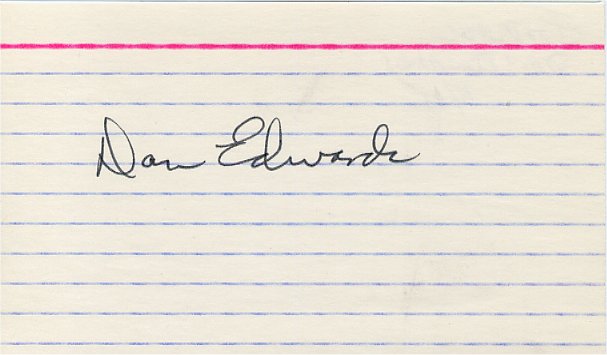 Dan Edwards